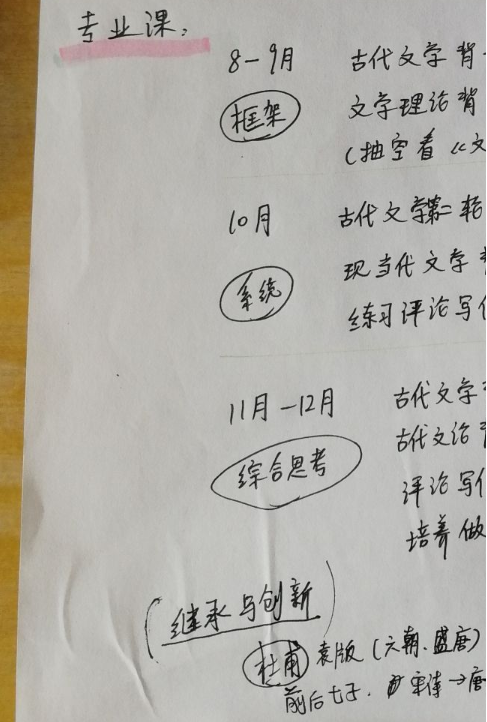 专业课:
8-9月 古代文学背
框架 文学理论背
(抽空看《文
10月 古代文学第二轮
现当代文学
系统
练习评论写作
11月-12月 古代文学
古代文论
综合思考
评论写作
培养做
(继承与创新)
杜甫 袁版(六朝、盛唐)
前后七子. 宋诗→唐